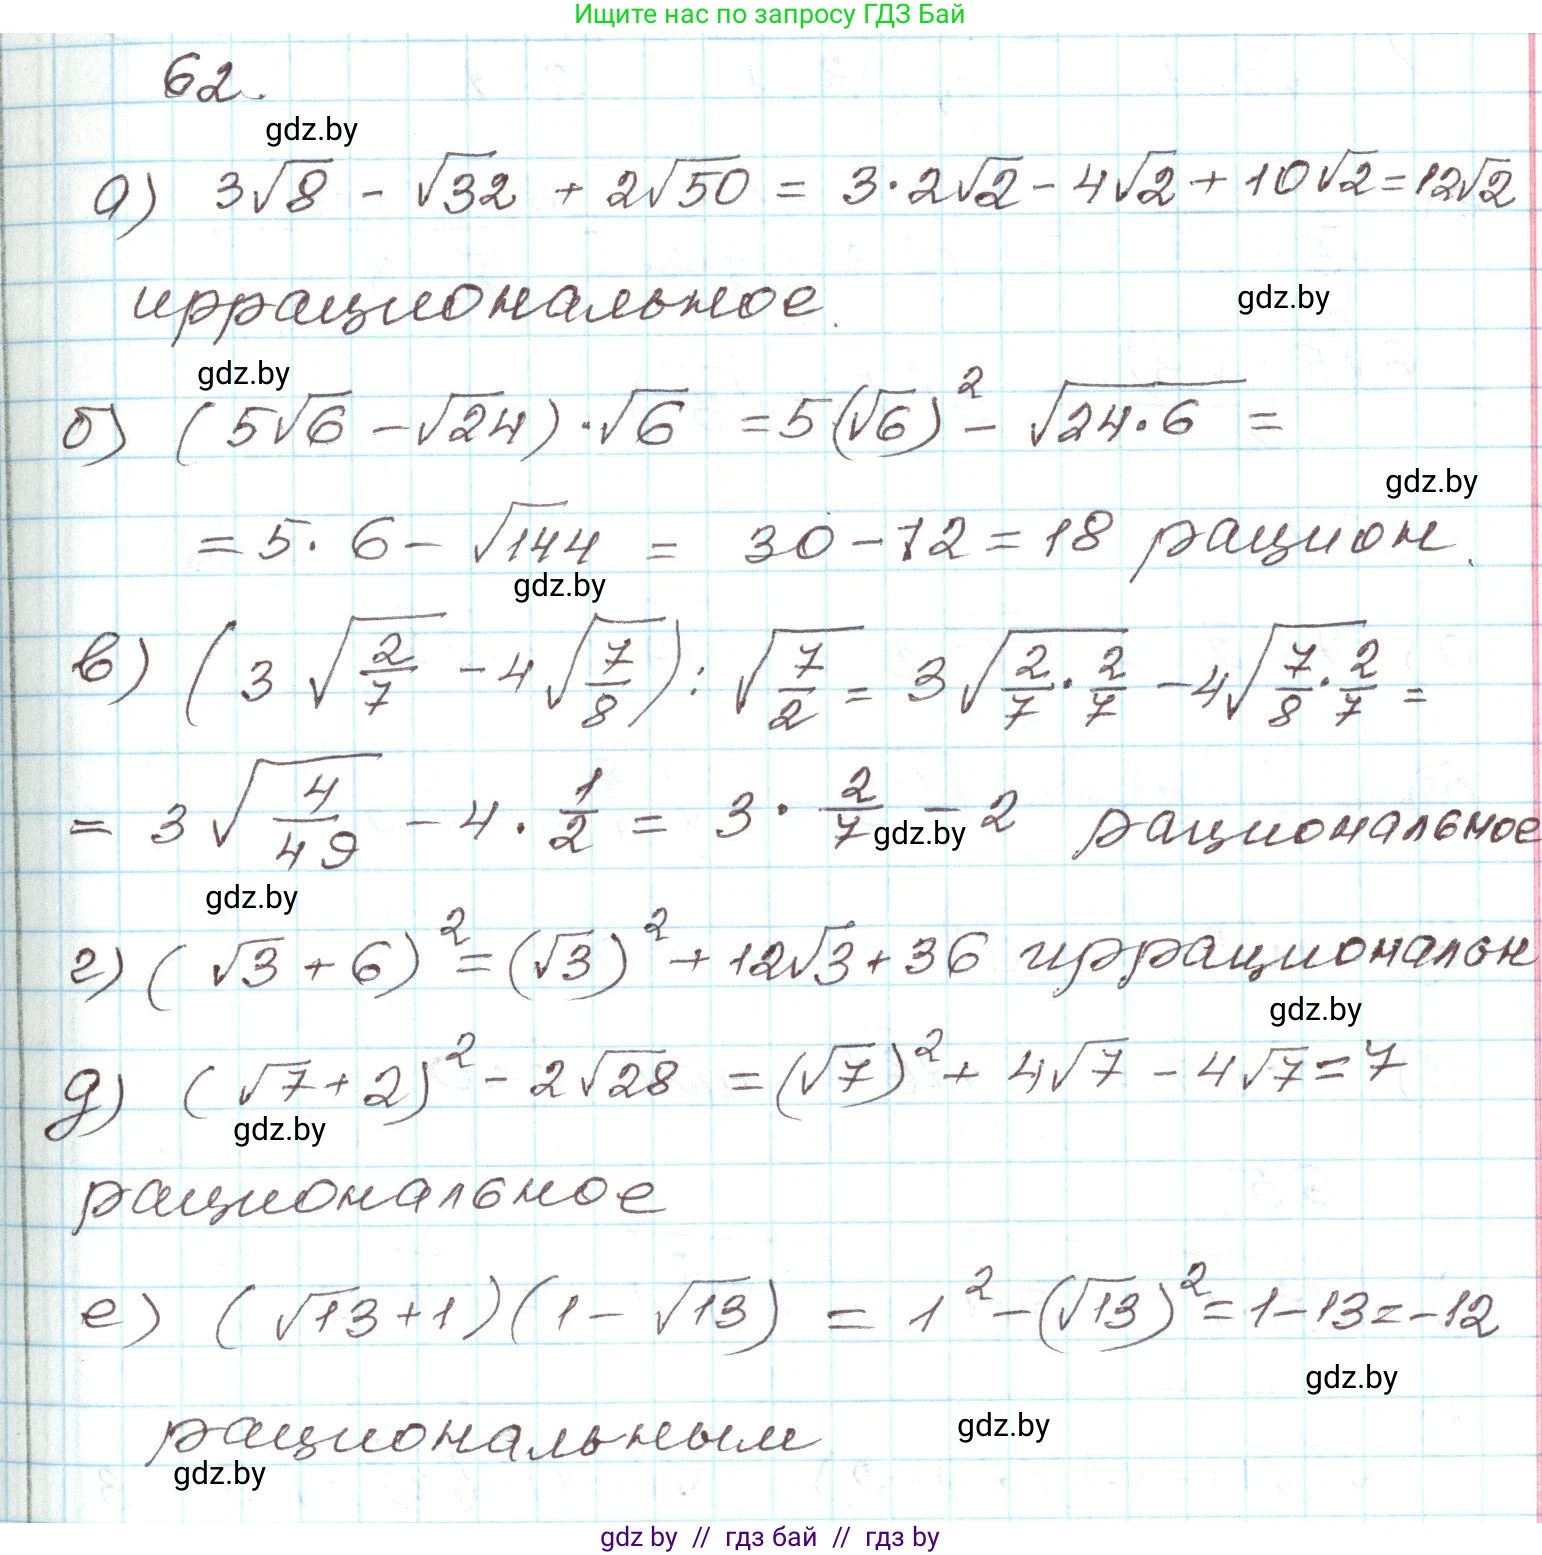 Ищите нас по запросу ГДЗ Бай
62.
gdz.by
а) 3√8 - √32 + 2√50 = 3·2√2 - 4√2 + 10√2 = 12√2
иррациональное.
gdz.by
gdz.by
б) (5√6 - √24)·√6 = 5(√6)² - √24·6 =
gdz.by
= 5·6 - √144 = 30 - 12 = 18 рацион.
gdz.by
в) (3√2/7 - 4√7/8) : √7/2 = 3√2/7·2/7 - 4√7/8·2/7 =
= 3√4/49 - 4·1/2 = 3·2/7 - 2 рациональное
gdz.by
gdz.by
г) (√3 + 6)² = (√3)² + 12√3 + 36 иррациональн
gdz.by
д) (√7 + 2)² - 2√28 = (√7)² + 4√7 - 4√7 = 7
gdz.by
рациональное
е) (√13 + 1)(1 - √13) = 1² - (√13)² = 1 - 13 = -12
gdz.by
рациональным
gdz.by
gdz.by
gdz by // гдз бай // гдз by